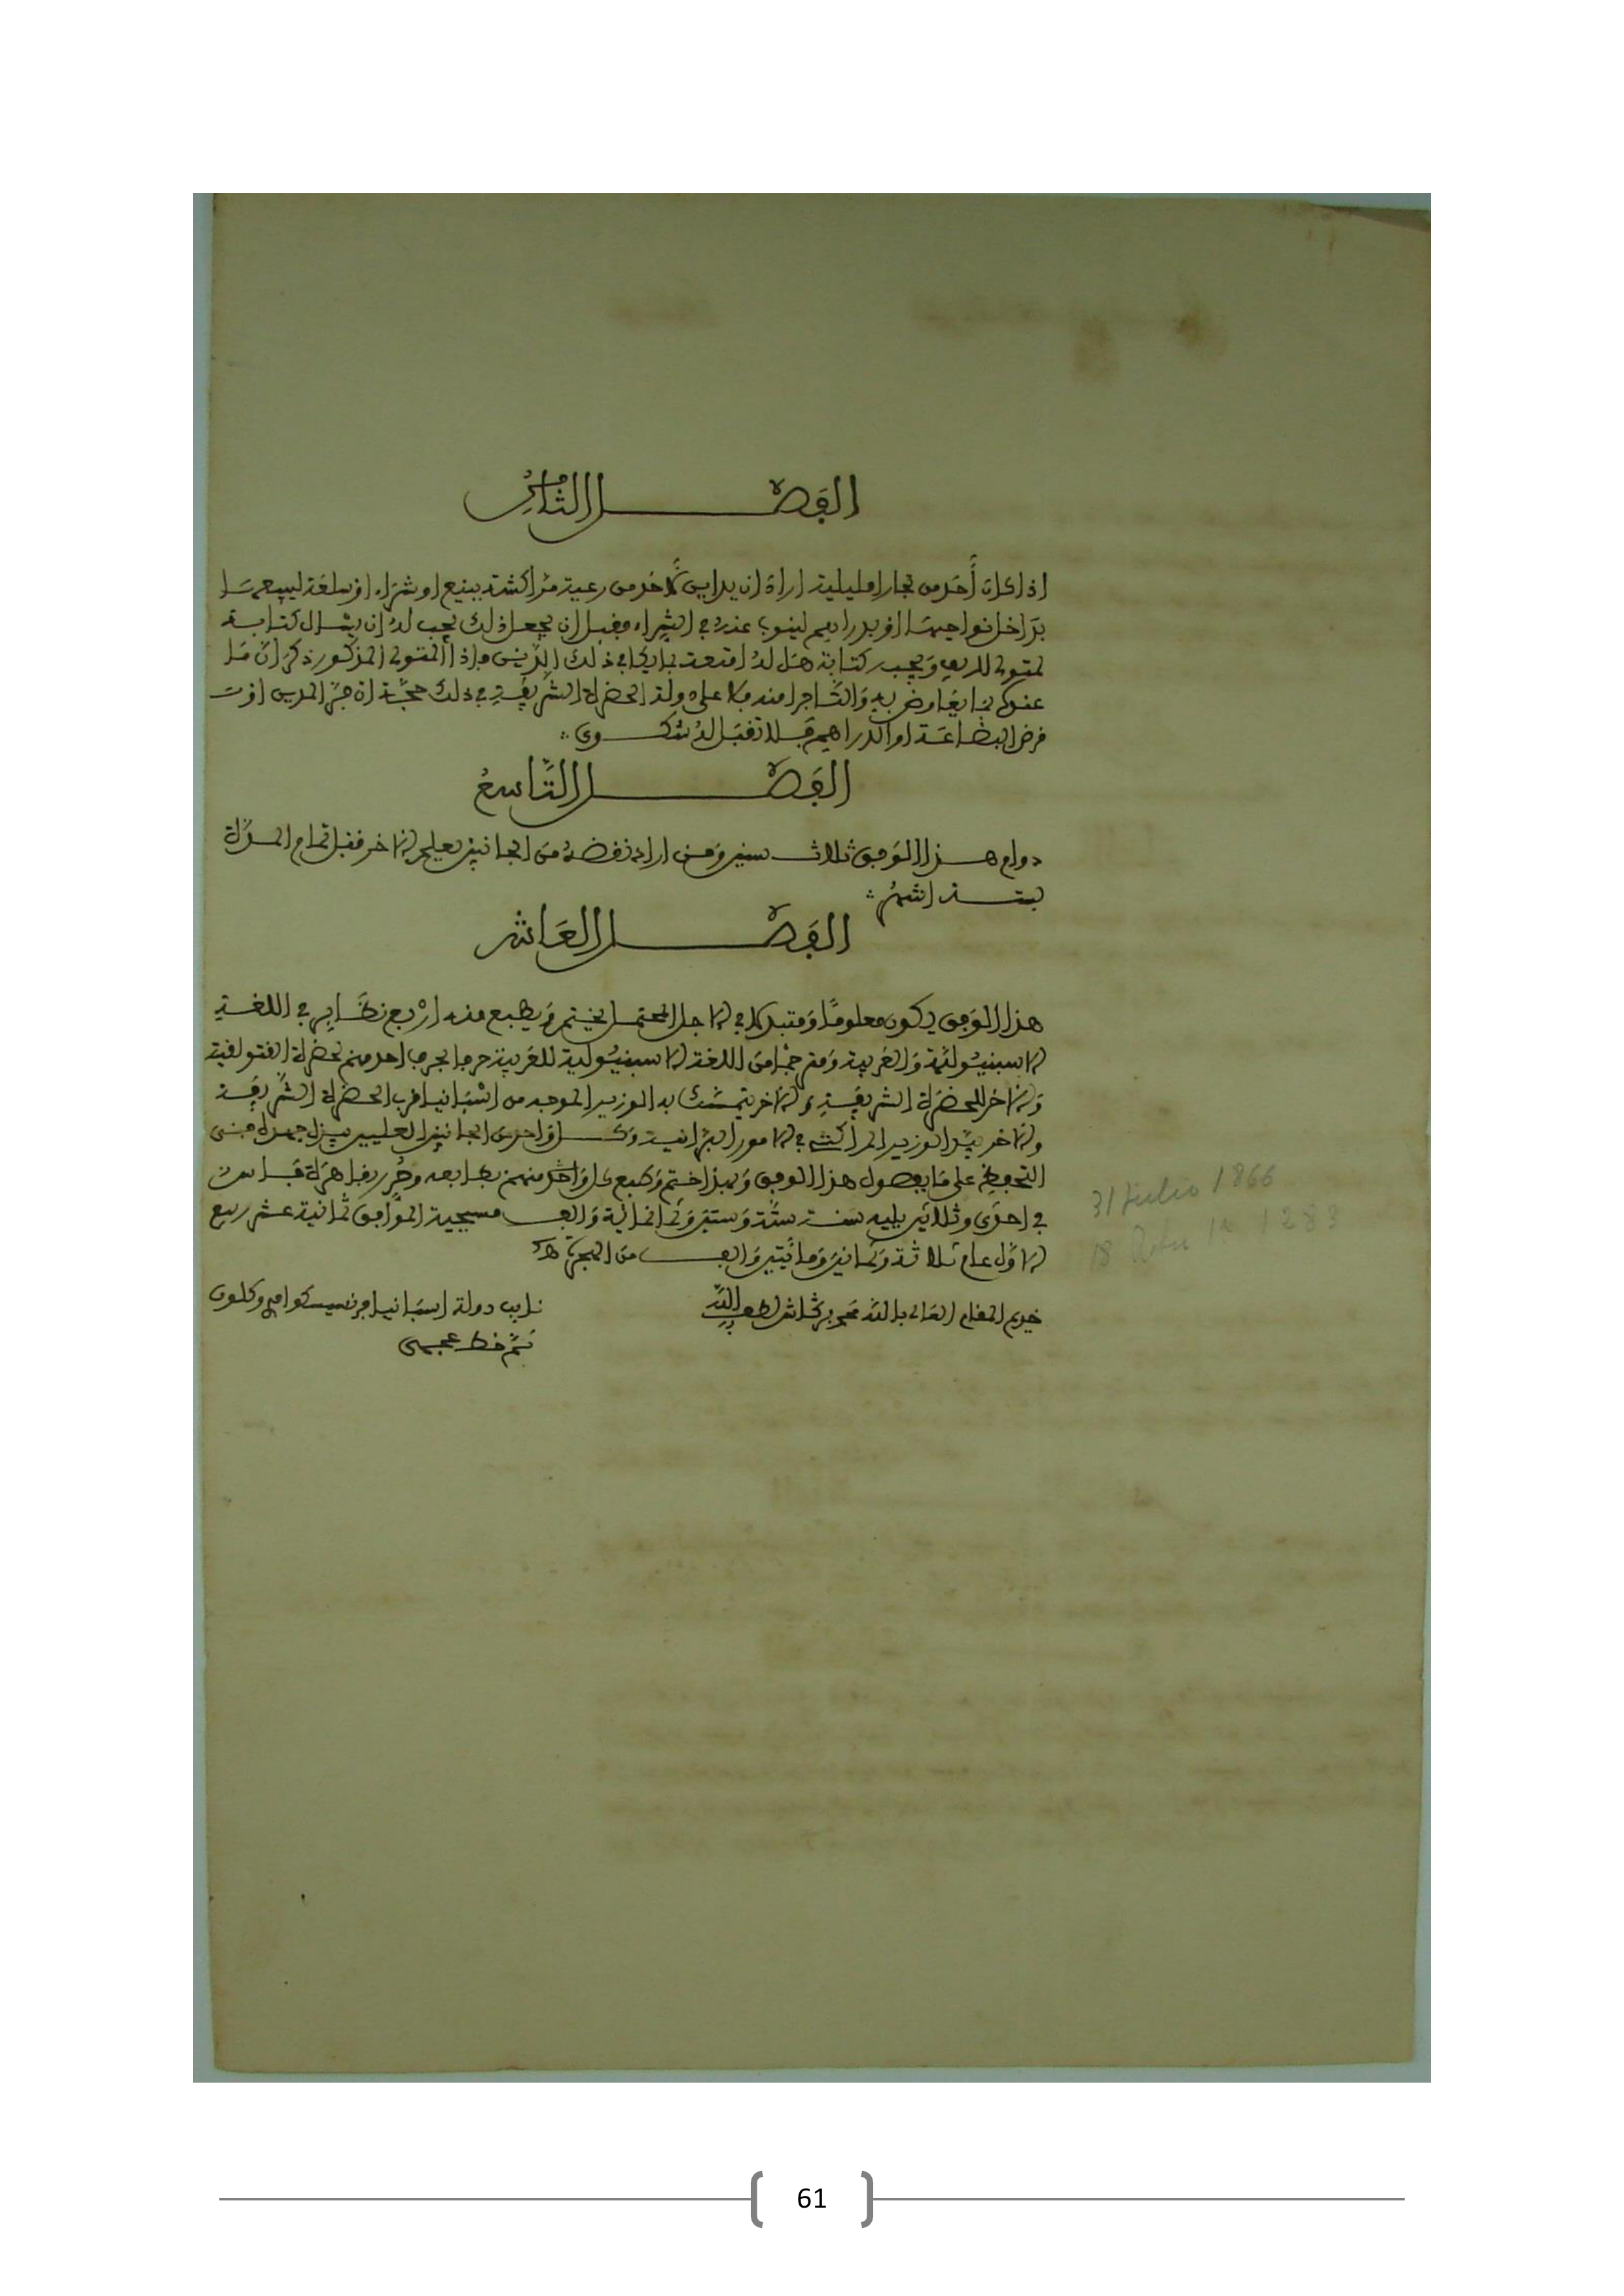 الفصل الثامن
اذا كان أحد من تجار امليلية اراد ان يداين لاحد من رعية مراكشة ببيع او شراء او سلعة ليبيعها
بداخل نواحيها او بدراهم لينوب عنه في الشراء فقبل ان يجعل ذلك يجب له ان يسال كتابة
لمتولي الريف ويجيب كتابة هل له امتعة بما يكافي ذلك الدين فاذا المتولي المذكور ذكر ان ما
عنده ما يعارض به والتاجر امنه فلا على دولة الحضرة الشريفة في ذلك حجة ان عجز المدين او
فرض البضاعة او الدراهم فلا تقبل له شكوى
الفصل التاسع
دوام هذا الوفق ثلاث سنين ومن اراد نقضه من الجانبين يعلم الاخر قبل تمام المدة
بستة اشهر
الفصل العاشر
هذا الوفق يكون معلوما ومتبدلا في الاجل المحتمل يختم ويطبع منه اربع نظاير في اللغة
الاسبنيولية والعربية ومترجما من اللغة الاسبنيولية للعربية حرفا بحرف احد منهم لحضرة الفتولقية
والاخر للحضرة الشريفة والاخر يتمسك به الوزير الموجه من اشبانيا قرب الحضرة الشريفة
والاخر بيد الوزير المراكشي في الامور البرانية وكل واحد من الجانبين العليين يبذل جهده في
التحفظ على ما بفصول هذا الوفق وبهذا ختم وطبع كل واحد منهم بطابعه وحرر بفاهرة فاس
في احدى وثلاثين يليه سنة ستة وستين وثمانماية والف مسيحية الموافق ثمانية عشر ربيع
الاول عام ثلاثة وثمانين ومائتين والف من الهجرة
خديم المقام العالي بالله محمد بركاش لطف الله به
نايب دولة اسبانيا فرنسيسكو امري وكلون
ثم خط عجمي
31 Julio 1866
18 1283
61